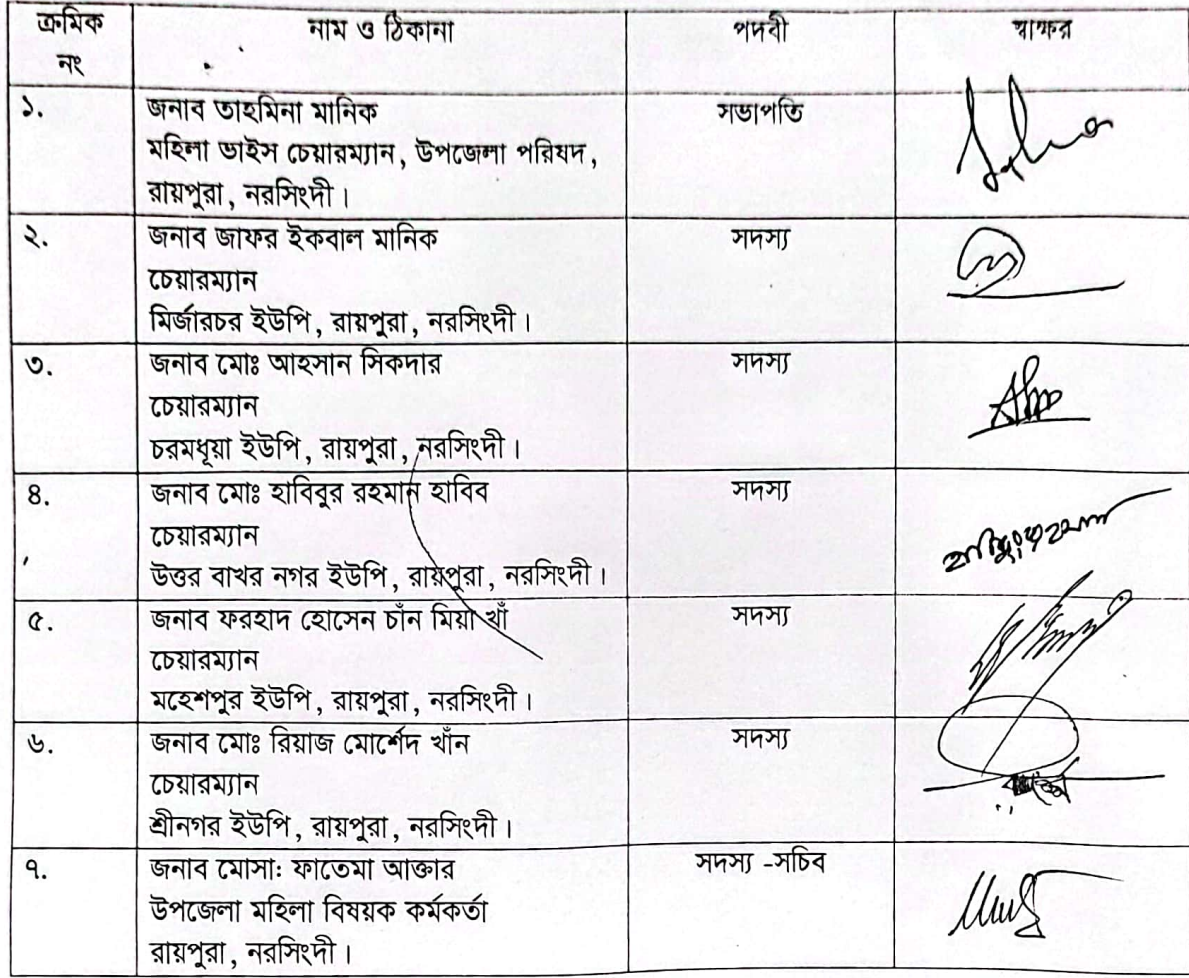 ক্রমিক নং নাম ও ঠিকানা পদবী স্বাক্ষর
১. জনাব তাহমিনা মানিক সভাপতি
মহিলা ভাইস চেয়ারম্যান, উপজেলা পরিষদ,
রায়পুরা, নরসিংদী।
২. জনাব জাফর ইকবাল মানিক সদস্য
চেয়ারম্যান
মির্জারচর ইউপি, রায়পুরা, নরসিংদী।
৩. জনাব মোঃ আহসান সিকদার সদস্য
চেয়ারম্যান
চরমধূয়া ইউপি, রায়পুরা, নরসিংদী।
৪. জনাব মোঃ হাবিবুর রহমান হাবিব সদস্য
চেয়ারম্যান
উত্তর বাখর নগর ইউপি, রায়পুরা, নরসিংদী।
৫. জনাব ফরহাদ হোসেন চাঁন মিয়া খাঁ সদস্য
চেয়ারম্যান
মহেশপুর ইউপি, রায়পুরা, নরসিংদী।
৬. জনাব মোঃ রিয়াজ মোর্শেদ খাঁন সদস্য
চেয়ারম্যান
শ্রীনগর ইউপি, রায়পুরা, নরসিংদী।
৭. জনাব মোসা: ফাতেমা আক্তার সদস্য -সচিব
উপজেলা মহিলা বিষয়ক কর্মকর্তা
রায়পুরা, নরসিংদী।